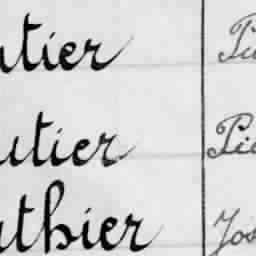 utier Pi
utier Pie
uthier Jos